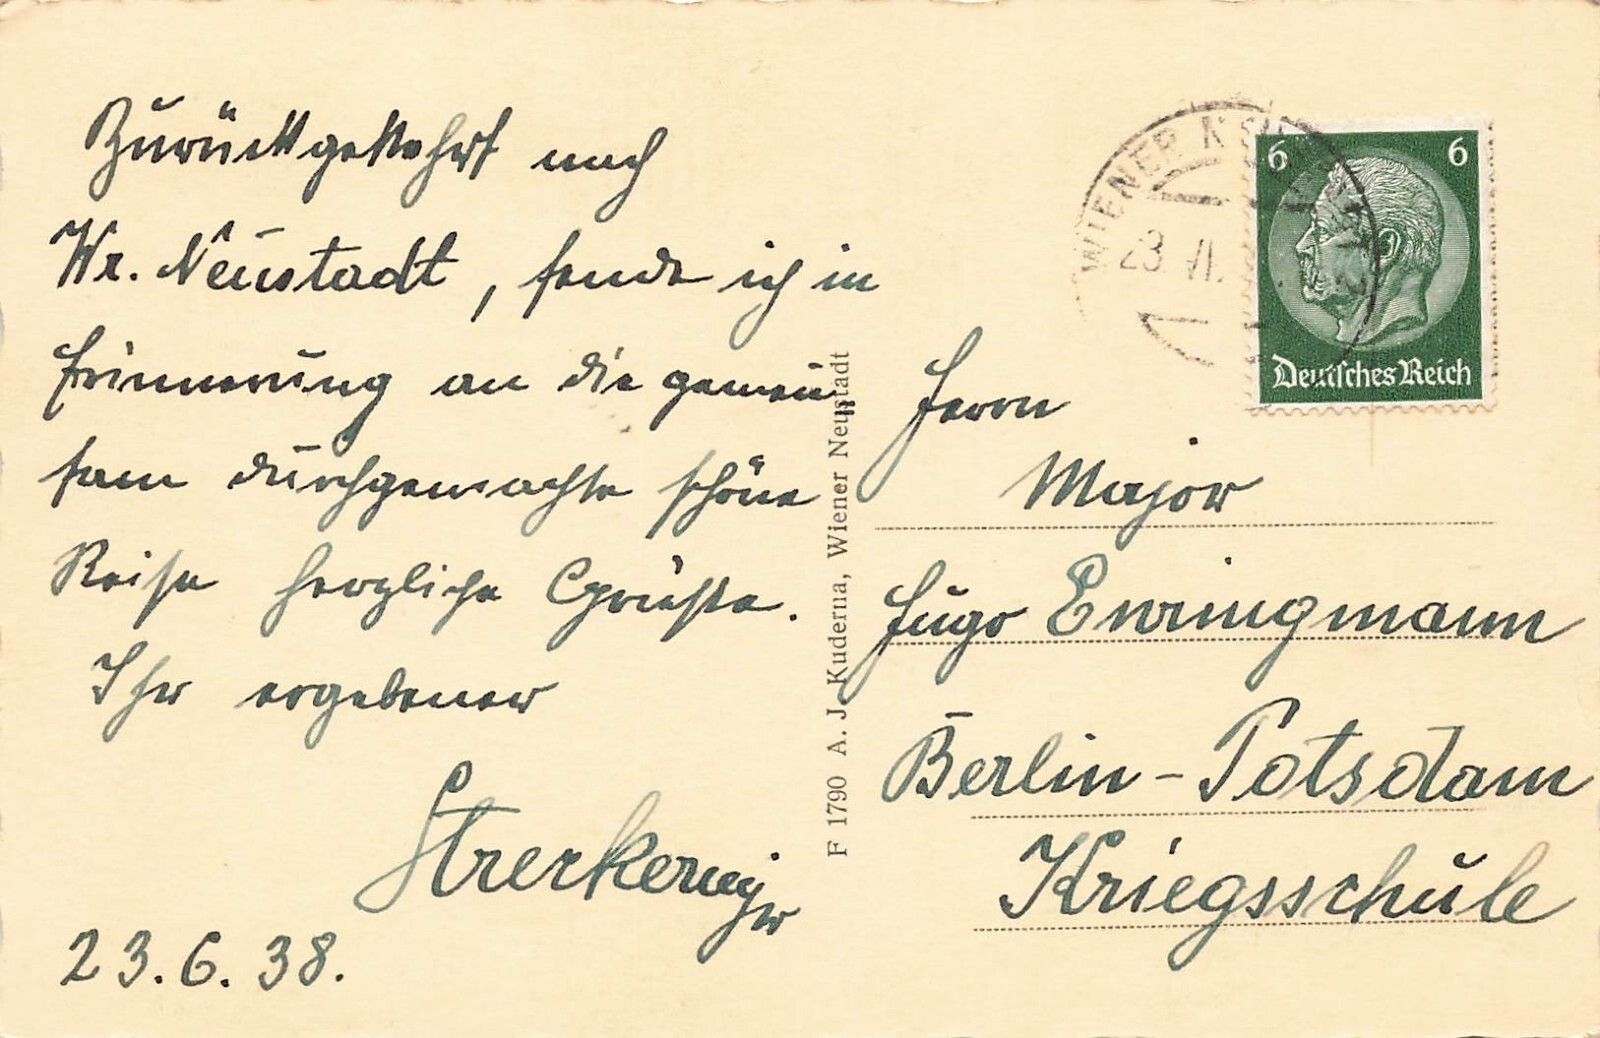 Zurückgekehrt nach
Wr. Neustadt, sende ich in
Erinnerung an die gemein„
sam durchgemachte schöne
Reise herzliche Grüsse.
Ihr ergebener
23.6.38.
F 1790 A. J. Kuderna, Wiener Neustadt
WIENER NEUSTADT
23. VI.
6 6
Deutsches Reich
Herrn
Major
Hugo Ewringmann
Berlin-Potsdam
Kriegsschule